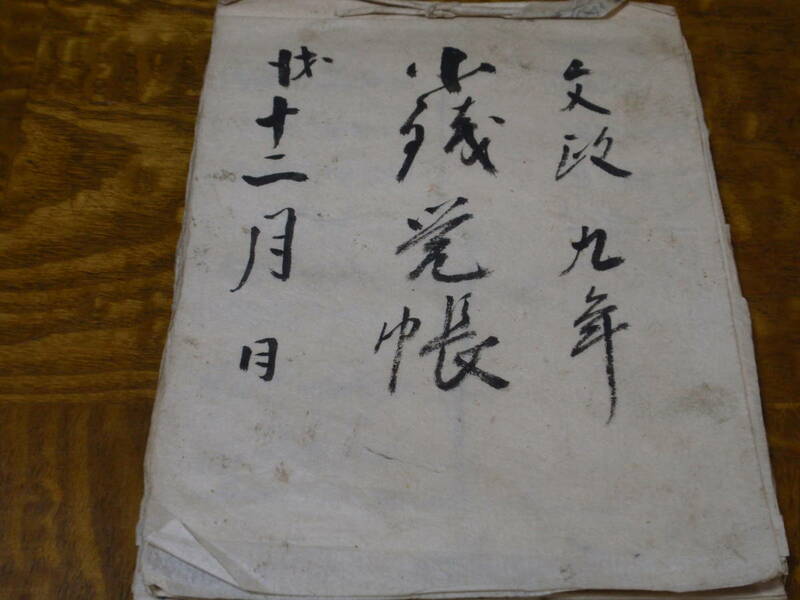 文政九年
小銭覚帳
戌十二月日